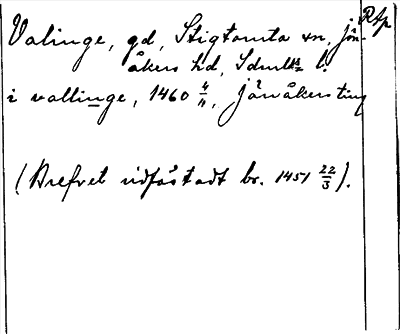 Valinge, gd, Stigtomta sn, Jön- RAp
åkers hd, Sdmlds l.
i vallinge, 1460 4/11, Jönåkers ting
(Brefvet vidfästadt br. 1451 22/3).